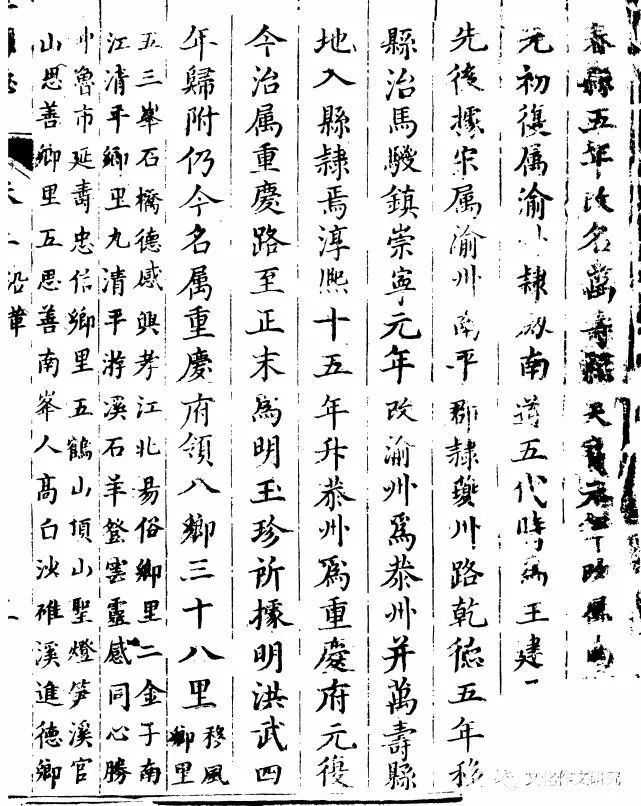 春縣五年改名萬壽縣天寶元年
元初復属渝州隸劍南道五代時為王建
先後據宋属渝州南平郡隸夔州路乾德五年移
縣治馬騣鎮崇寧元年改渝州爲恭州并萬壽縣
地入縣隸焉淳熙十五年升恭州爲重慶府元復
今治属重慶路至正末爲明玉珍所據明洪武四
年歸附仍今名属重慶府領八鄉三十八里穆風
鄉里
五三峯石橋德感興孝江北易俗鄉里二金子南
江清平鄉里九清平游溪石羊登雲靈感同心勝
冲魯市延壽忠信鄉里五鶴山頂山聖燈笋溪官
山思善鄉里五思善南峯人高白沙碓溪進德鄉
沿革
文化作文研究